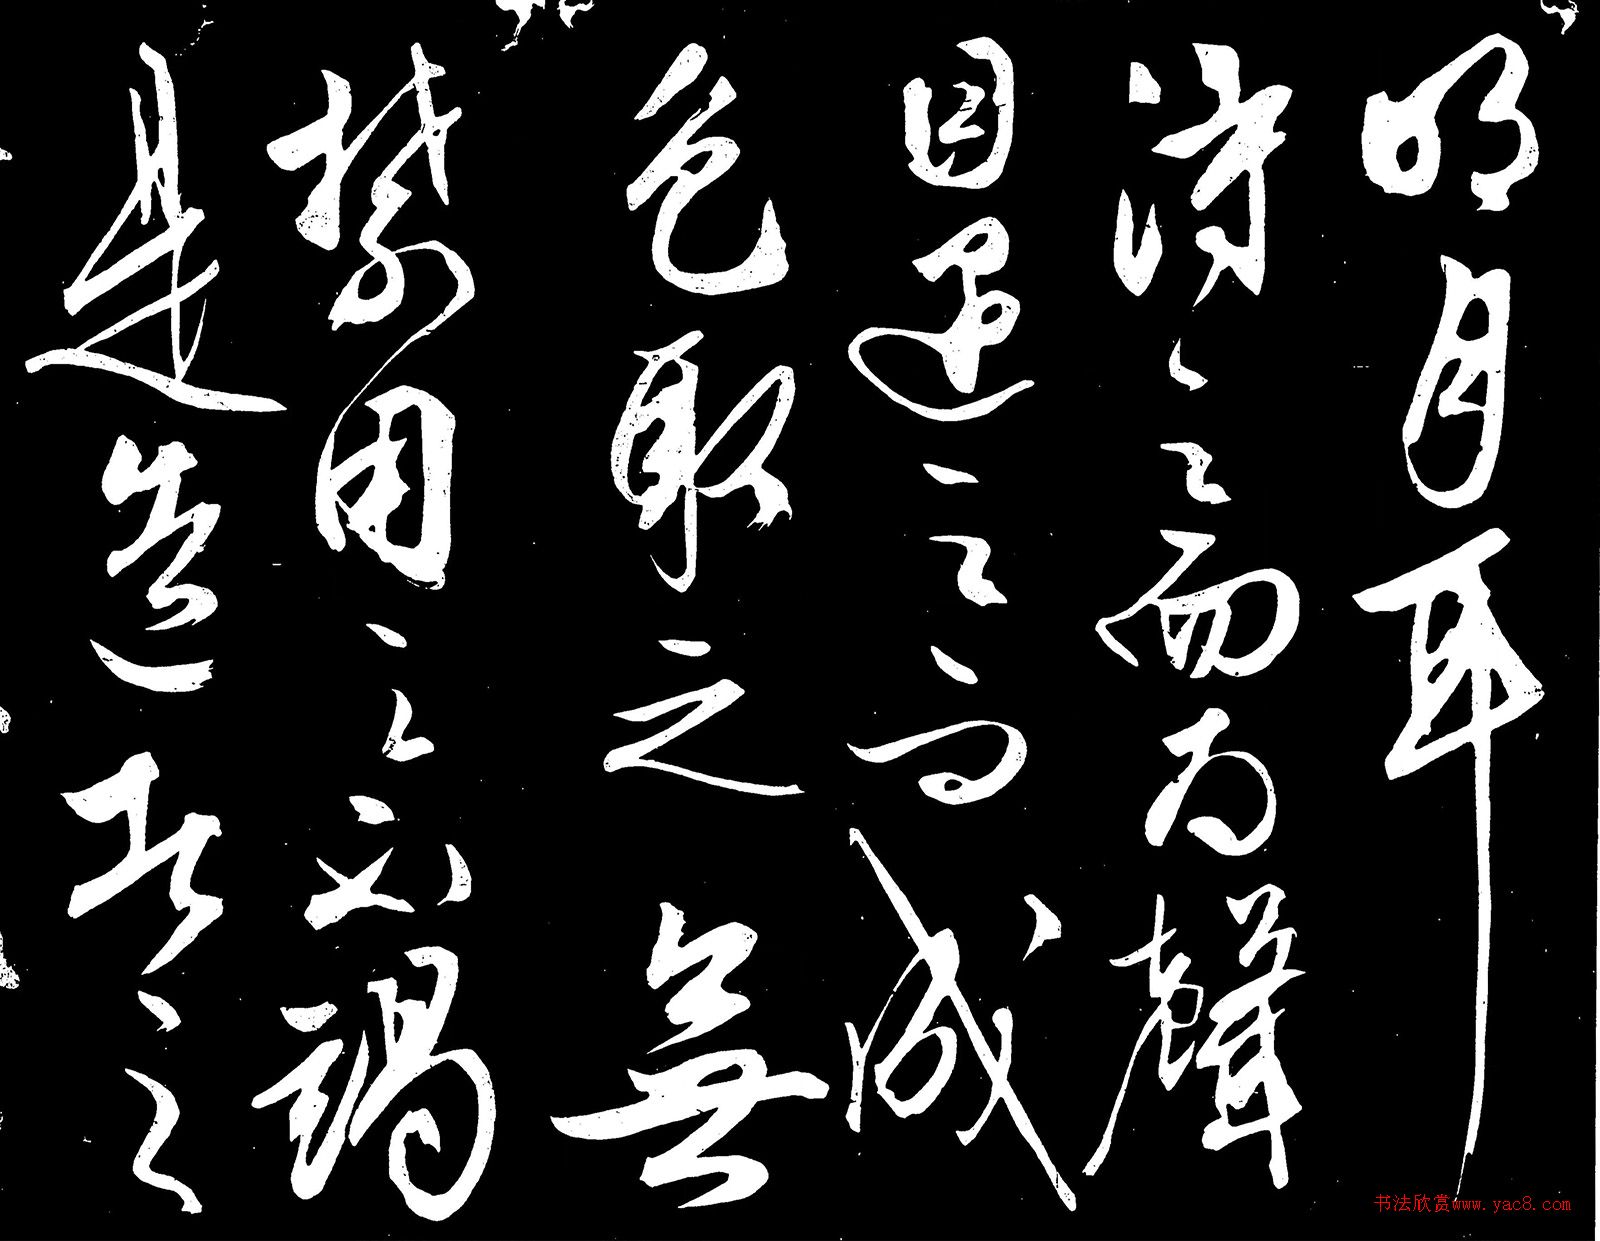 明月耳
得之而为聲
目遇之而成
色取之無
禁用之不竭
是造者之
书法欣赏www.yac8.com